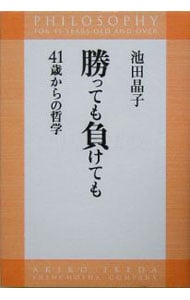 PHILOSOPHY
FOR 41 YEARS OLD AND OVER
池田晶子
勝っても負けても
41歳からの哲学
AKIKO IKEDA
SHINCHOSHA COMPANY